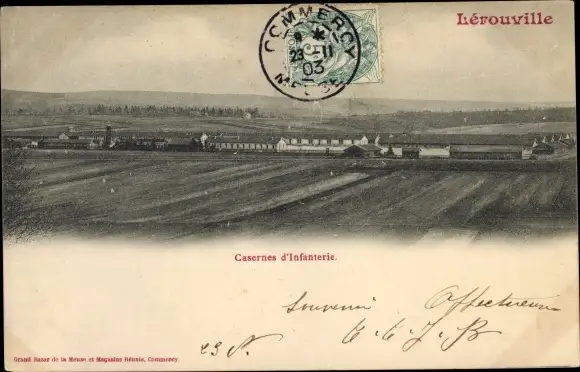 Lérouville
COMMERCY
23 -11
03
MEUSE
Casernes d'Infanterie.
Souvenir Affectueux
23 N.
Grand Bazar de la Meuse et Magasins Réunis, Commercy.